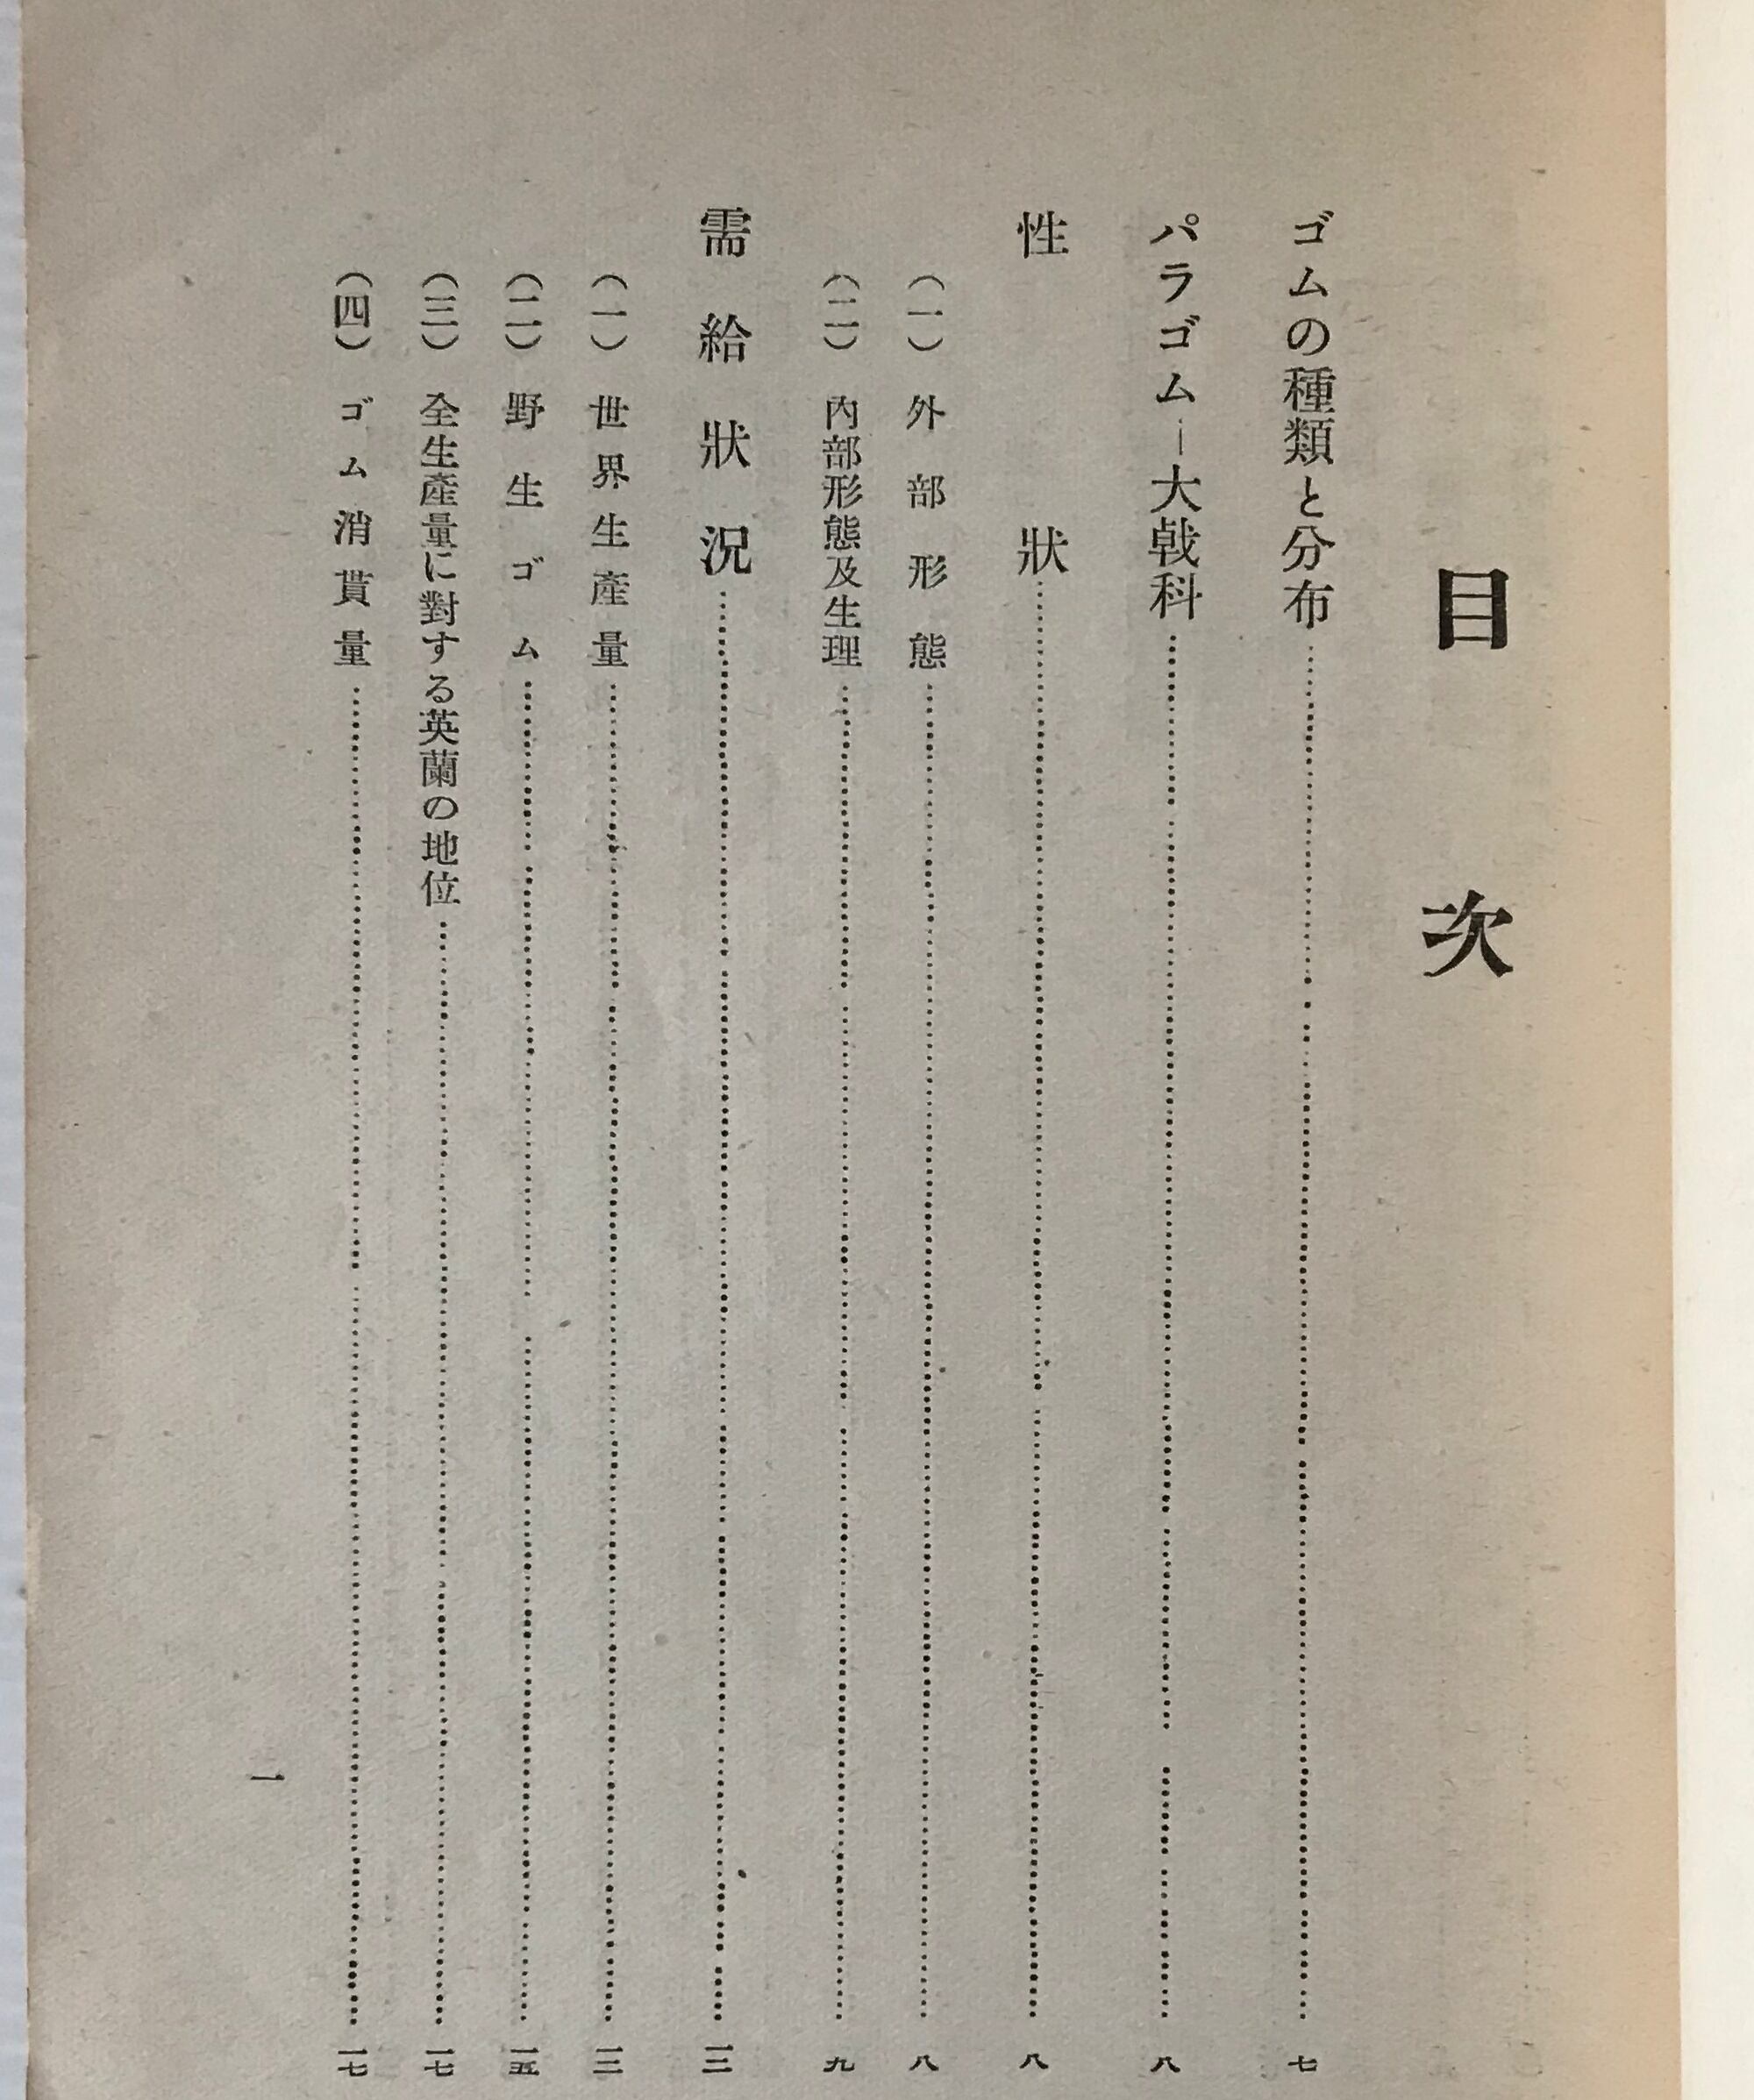 目次
ゴムの種類と分布……七
パラゴム―大戟科……八
性狀……八
（一）外部形態……八
（二）內部形態及生理……九
需給狀況……一二
（一）世界生產量……一二
（二）野生ゴム……一五
（三）全生產量に對する英蘭の地位……一七
（四）ゴム消貰量……一七
一